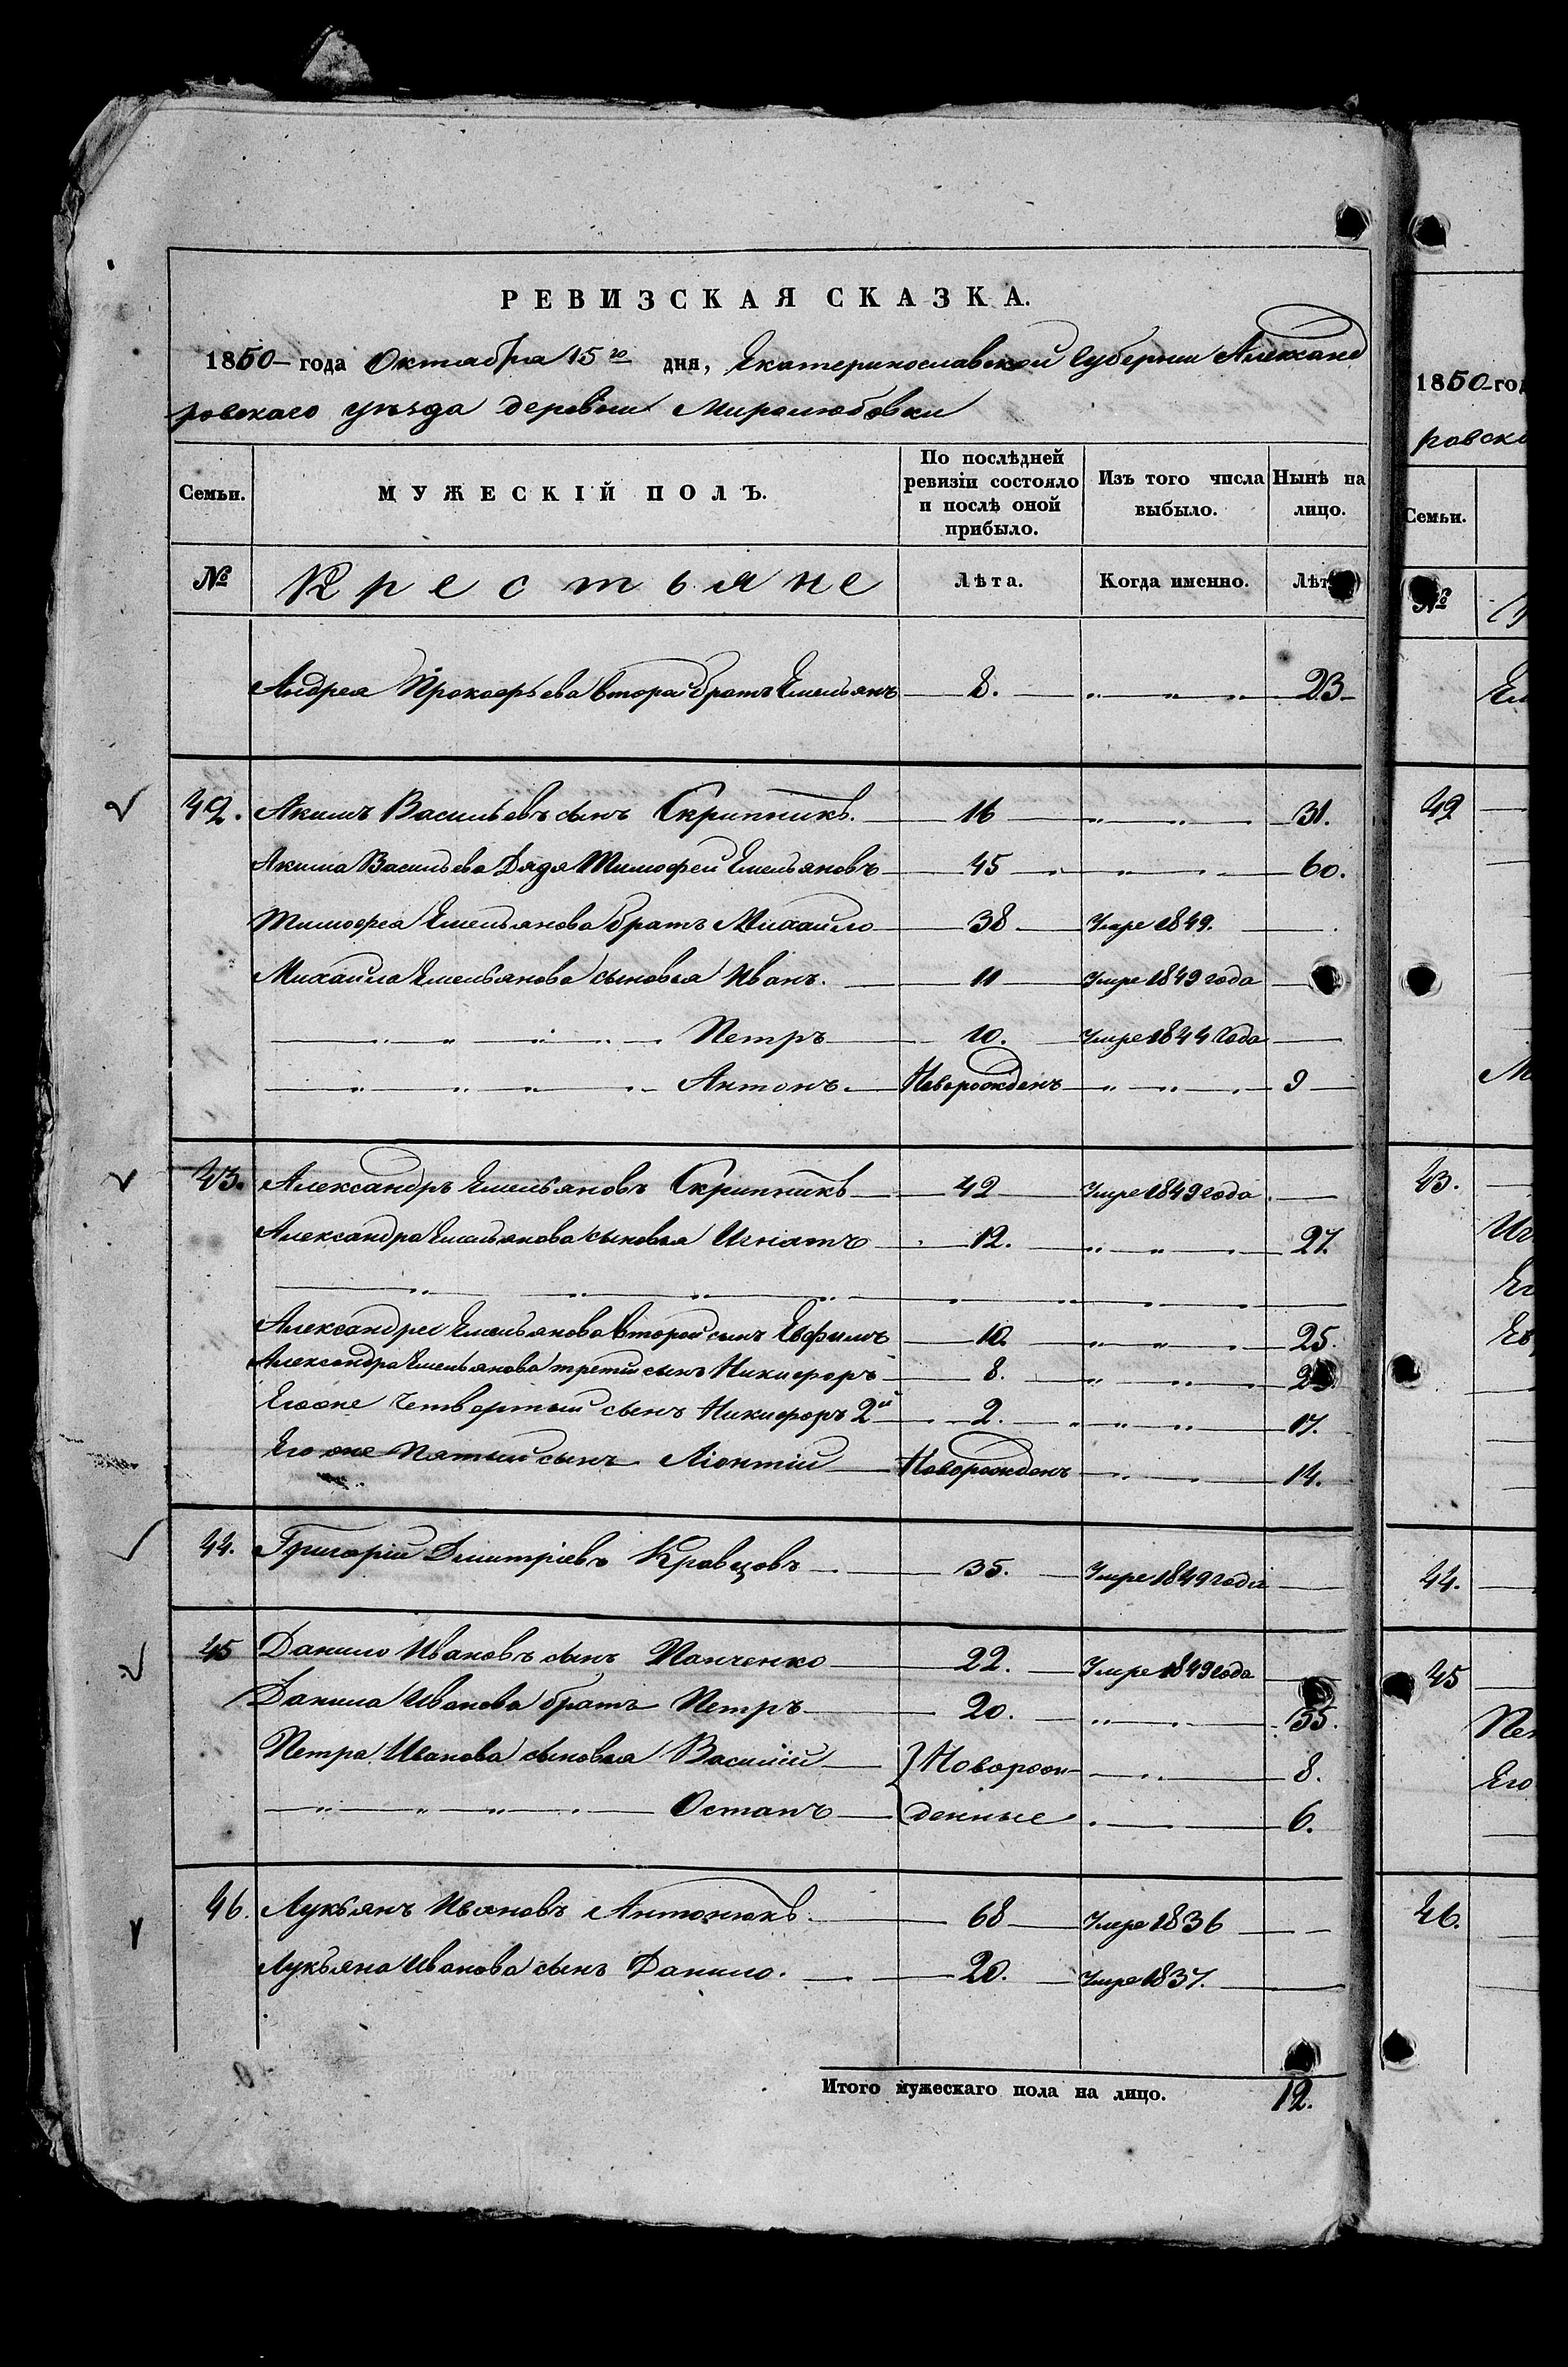 РЕВИЗСКАЯ СКАЗКА.
1850– года Октября 15го дня, Екатеринославской Губернии Александ
ровскаго уѣзда деревни Миролюбовки
Семьи. МУЖЕСКІЙ ПОЛЪ. По послѣдней ревизіи состояло и послѣ оной прибыло. Изъ того числа выбыло. Нынѣ на лицо.
№ Крестьяне Лѣта. Когда именно. Лѣт
Андрея Прокофьева второй братъ Емельянъ 8. " " " 23
42. Акимъ Васильевъ сынъ Скрипникъ. 16 " " 31.
Акима Васильева Дядя Тимофей Емельяновъ 45 " " 60.
Тимофея Емельянова братъ Михайло 38 Умре 1849.
Михайла Емельянова сыновья Иванъ. 11 Умре 1849 года
" " " " Петръ 10. Умре 1844 года
" " " " Антонъ. Новорожденъ " " 9
43. Александръ Емельяновъ Скрипникъ 42 Умре 1849 года
Александра Емельянова сыновья Игнатъ 12. " " 27.
" " " "
Александра Емельянова второй сынъ Евфимъ 10. " " 25.
Александра Емельянова третій сынъ Никифоръ 8. " " 23.
Егоже Четвертый сынъ Никифоръ 2й 2. " " 17.
Его же Пятый сынъ Ліонтій Новорожденъ " " 14.
44. Григорій Дмитріевъ Кравцовъ 35. Умре 1849 года
45 Данило Ивановъ сынъ Панченко 22. Умре 1849 года
Данила Иванова братъ Петръ 20. " 35.
Петра Иванова сыновья Василій } Новорож- " 8.
" " " Остапъ денные " 6.
46. Лукьянъ Ивановъ Антонюкъ. 68 Умре 1836
Лукьяна Иванова сынъ Данило. 20. Умре 1837.
Итого мужескаго пола на лицо. 12.
1850-год
ровска
Семьи.
№
Ем
42
М
43.
Иг
Ег
Ев
44.
45
Пет
Его
46.